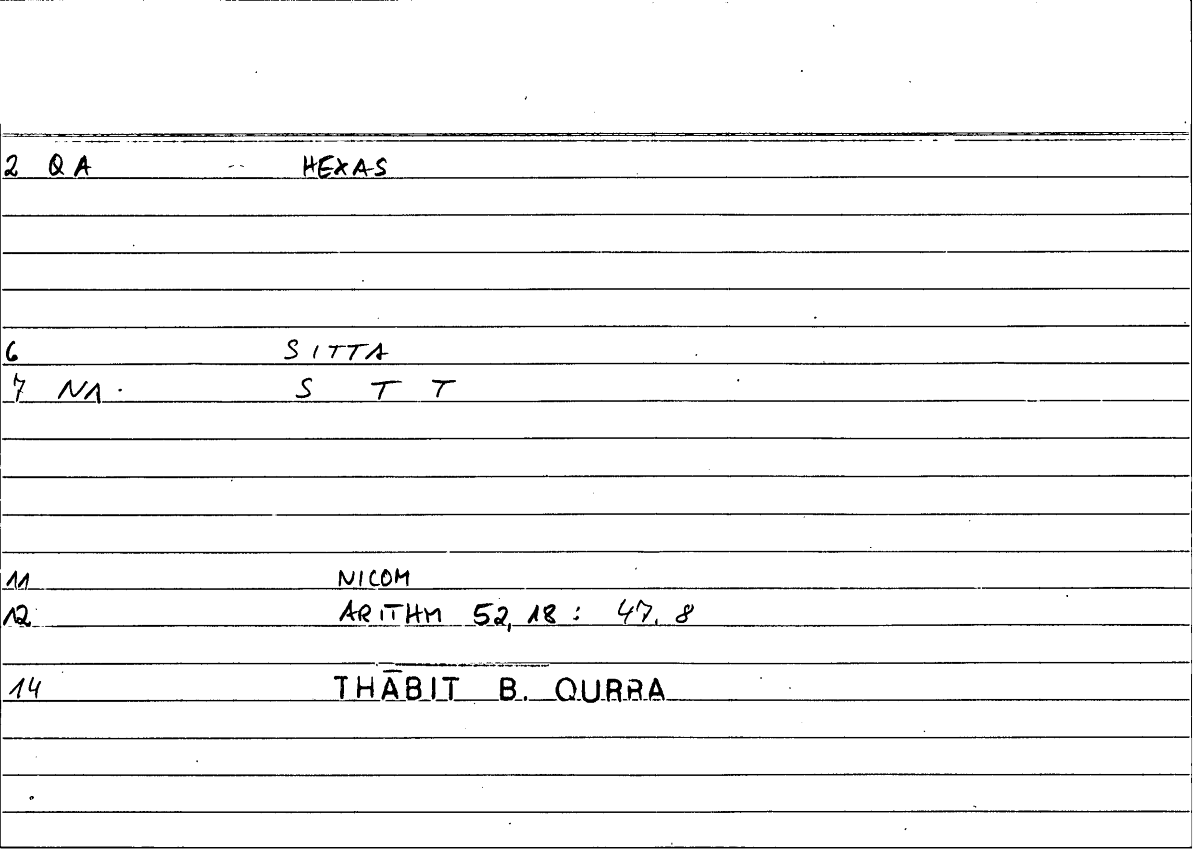 2 QA -- HEXAS
6 SITTA
7 NA. S T T
11 NICOM
12 ARITHM 52,18: 47.8
14 THĀBIT B. QURRA